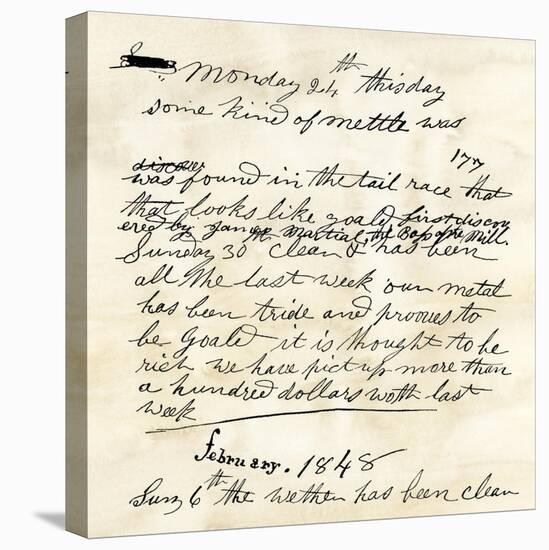 Monday 24th this day
some kind of mettle was
177
discover
was found in the tail race that
that looks like goald first discov
ered by James Martial, the Boss of the Mill.
Sunday 30th clean & has been
all the last week our metal
has been tride and prooves to
be Goald it is thought to be
rich we have pict up more than
a hundred dollars woth last
week
february. 1848
Sun 6th the wether has been clean